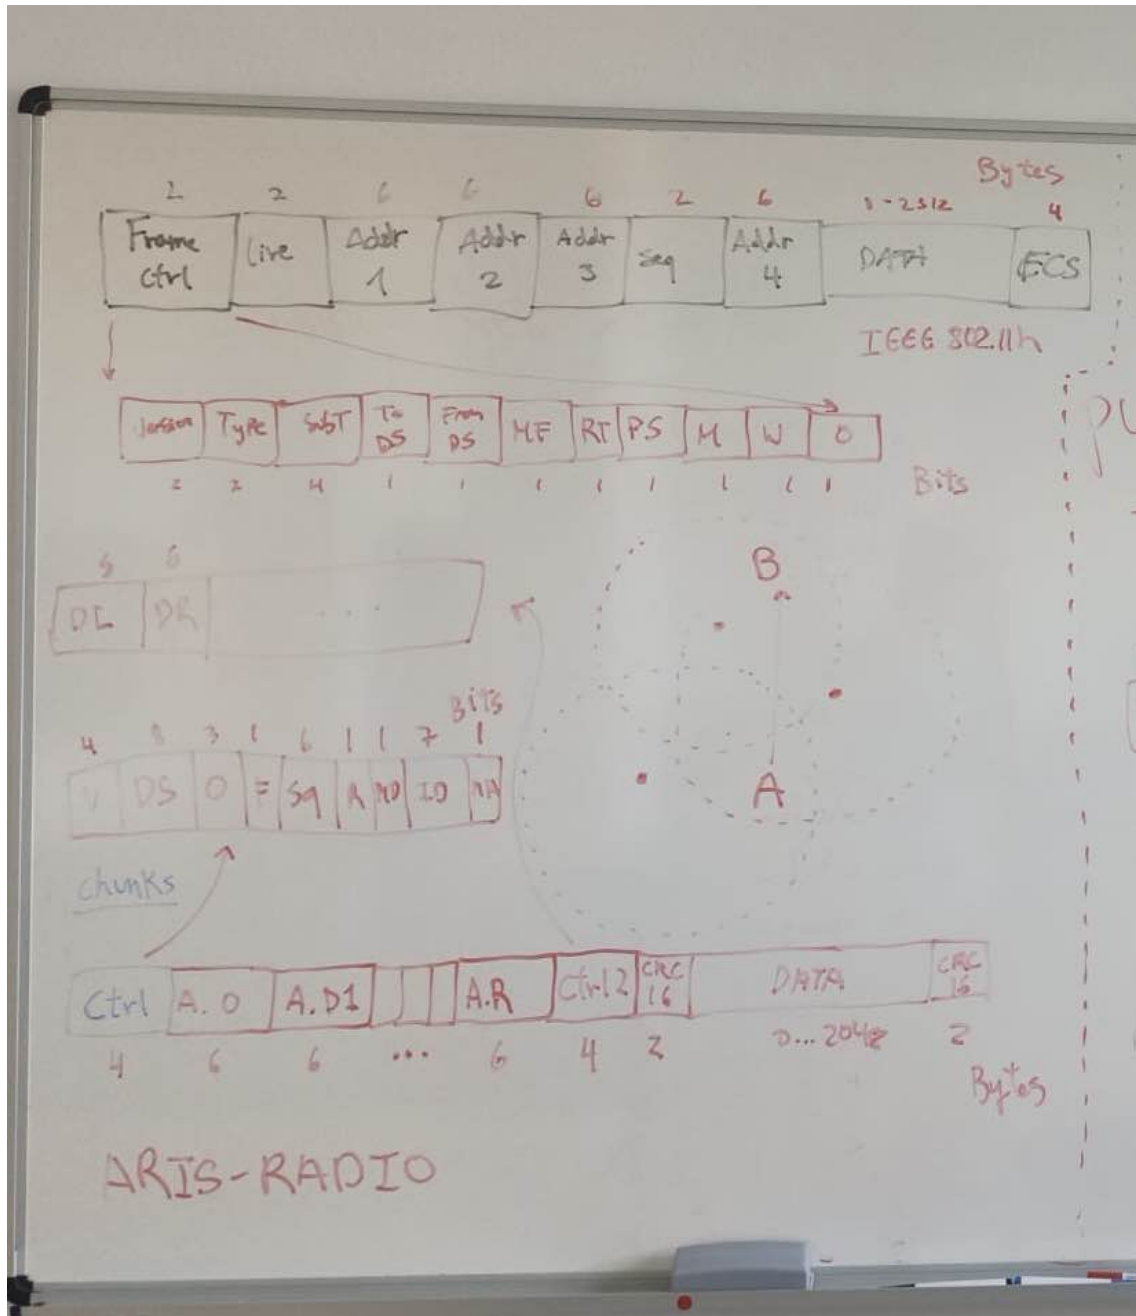 Bytes
2 2 6 6 6 2 6 0-2312 4
Frame Ctrl Live Addr 1 Addr 2 Addr 3 Seq Addr 4 DATA FCS
IEEE 802.11n
Version Type SubT To DS From DS MF RT PS M W O
2 2 4 1 1 1 1 1 1 1 1 Bits
B
6
DR ...
Bits
4 8 3 1 6 1 1 7 1
V DS O F Sq R ID
A
chunks
Ctrl A.O A.D1 A.R Ctrl2 CRC 16 DATA CRC 16
4 6 6 ... 6 4 2 0...2048 2
Bytes
ARIS-RADIO